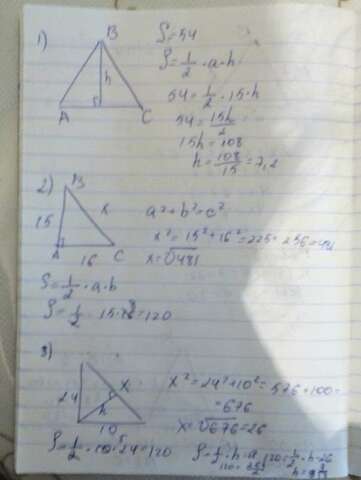 1)
B
h
A
C
S=54
S=1/2·a·h
54=1/2·15·h
54=15h/2
15h=108
h=108/15=7,2
2)
B
15
x
A
16
C
a²+b²=c²
x²=15²+16²=225+256=481
x=√481
S=1/2·a·b
S=1/2·15·16=120
3)
24
x
h
10
x²=24²+10²=576+100=
=676
x=√676=26
S=1/2·10·24=120
S=1/2·h·a
120=1/2·h·26